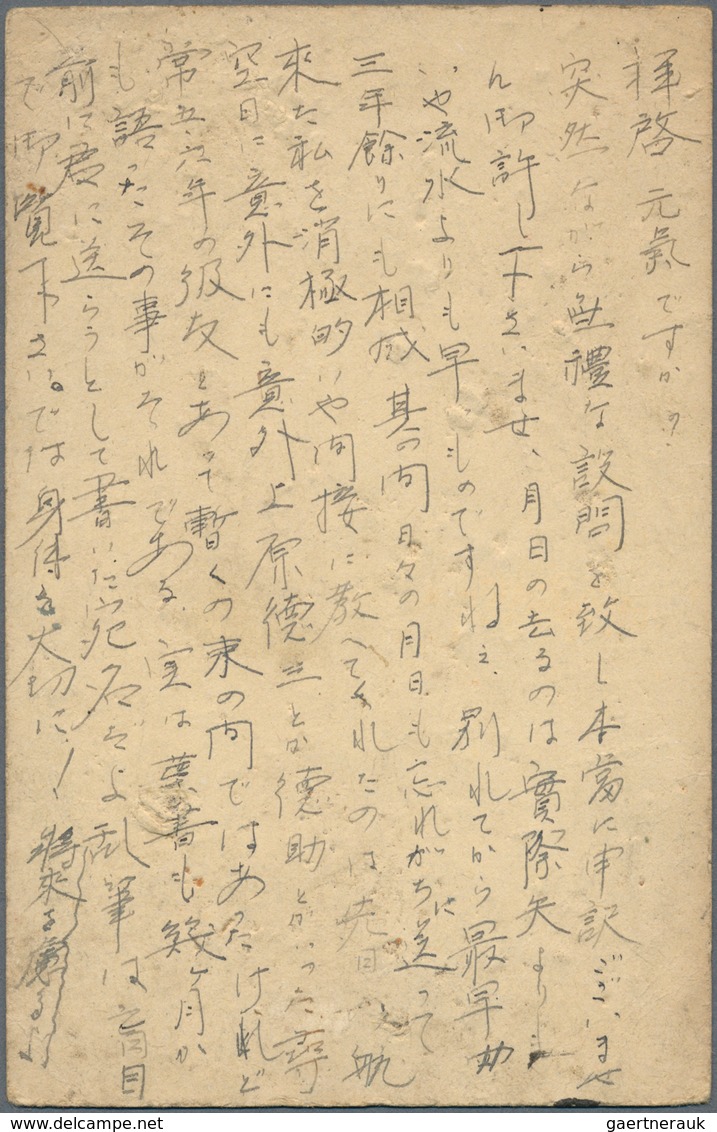 拝啓 元氣ですか?
突然ながら無禮な設問を致し本當に申訳ございませ
ん御許し下さいませ、月日の去るのは實際矢よりも
いや流水よりも早いものですねえ、別れてから最早
三年餘りにも相成 其の間日々の月日も忘れがちに送って
来た私を消極的いや間接に教へてくれたのは先日
空目に意外にも意外上原徳三とか徳助とかいった尋
常五、六年の級友とあって暫くの束の間ではあったけれど
も語ったその事がそれである 実は葉書も幾ヶ月か
前に君に送らうとして書いた宛名だよ乱筆は盲目
で御覧下さい。では身体を大切に!
gaertnerauk